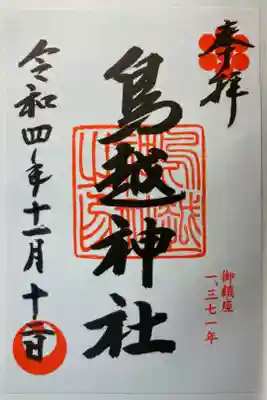 奉拝
御鎮座
一、三七一年
鳥越神社
令和四年十一月十二日